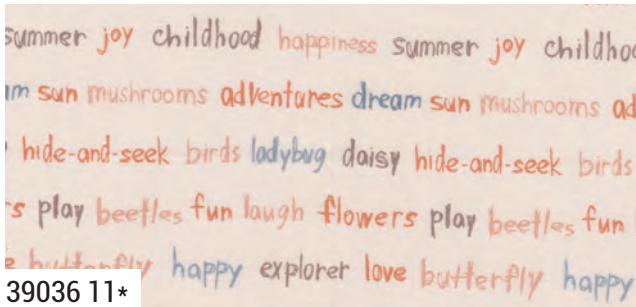 summer joy childhood happiness summer joy childhoo
am sun mushrooms adventures dream sun mushrooms ad
hide-and-seek birds ladybug daisy hide-and-seek birds
rs play beetles fun laugh flowers play beetles fun
e butterfly happy explorer love butterfly happy
39036 11*